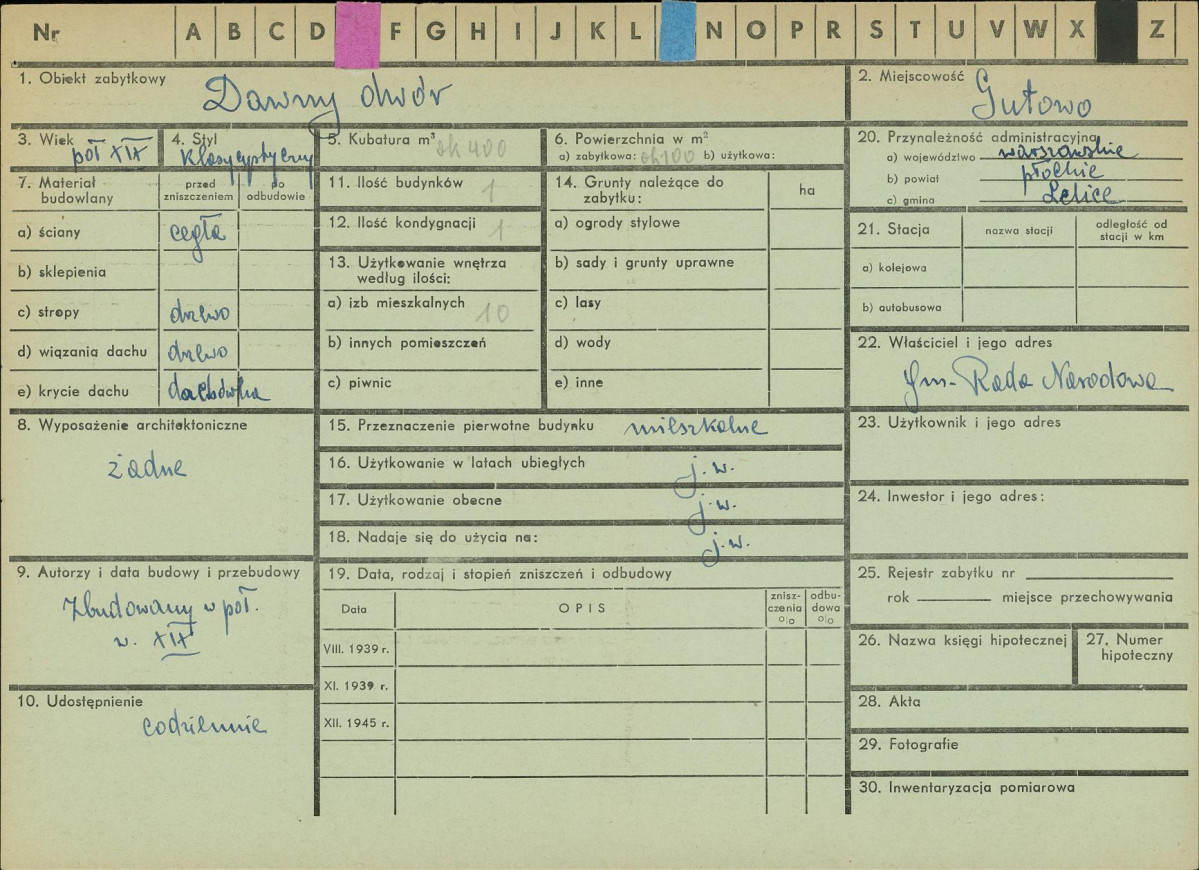 Nr A B C D F G H I J K L N O P R S T U V W X Z
1. Obiekt zabytkowy Dawny dwór
2. Miejscowość Gutowo
3. Wiek poł XIX
4. Styl klasycystyczny
5. Kubatura m³ ok 400
6. Powierzchnia w m²
a) zabytkowa: ok 100 b) użytkowa:
20. Przynależność administracyjna
a) województwo warszawskie
b) powiat płockie
c) gmina Lelice
7. Materiał budowlany
przed zniszczeniem
po odbudowie
a) ściany cegła
b) sklepienia
c) stropy drewo
d) wiązania dachu drewo
e) krycie dachu dachówka
11. Ilość budynków 1
12. Ilość kondygnacji 1
13. Użytkowanie wnętrza
według ilości:
a) izb mieszkalnych 10
b) innych pomieszczeń
c) piwnic
14. Grunty należące do
zabytku:
ha
a) ogrody stylowe
b) sady i grunty uprawne
c) lasy
d) wody
e) inne
21. Stacja
nazwa stacji
odległość od
stacji w km
a) kolejowa
b) autobusowa
22. Właściciel i jego adres
Gm. Rada Narodowa
8. Wyposażenie architektoniczne
żadne
15. Przeznaczenie pierwotne budynku mieszkalne
16. Użytkowanie w latach ubiegłych j.w.
17. Użytkowanie obecne j.w.
18. Nadaje się do użycia na: j.w.
23. Użytkownik i jego adres
24. Inwestor i jego adres:
9. Autorzy i data budowy i przebudowy
Zbudowany w poł.
w. XIX
19. Data, rodzaj i stopień zniszczeń i odbudowy
Data
OPIS
znisz-
czenia
%
odbu-
dowa
%
VIII. 1939 r.
XI. 1939 r.
XII. 1945 r.
25. Rejestr zabytku nr
rok miejsce przechowywania
26. Nazwa księgi hipotecznej
27. Numer
hipoteczny
10. Udostępnienie
codziennie
28. Akta
29. Fotografie
30. Inwentaryzacja pomiarowa